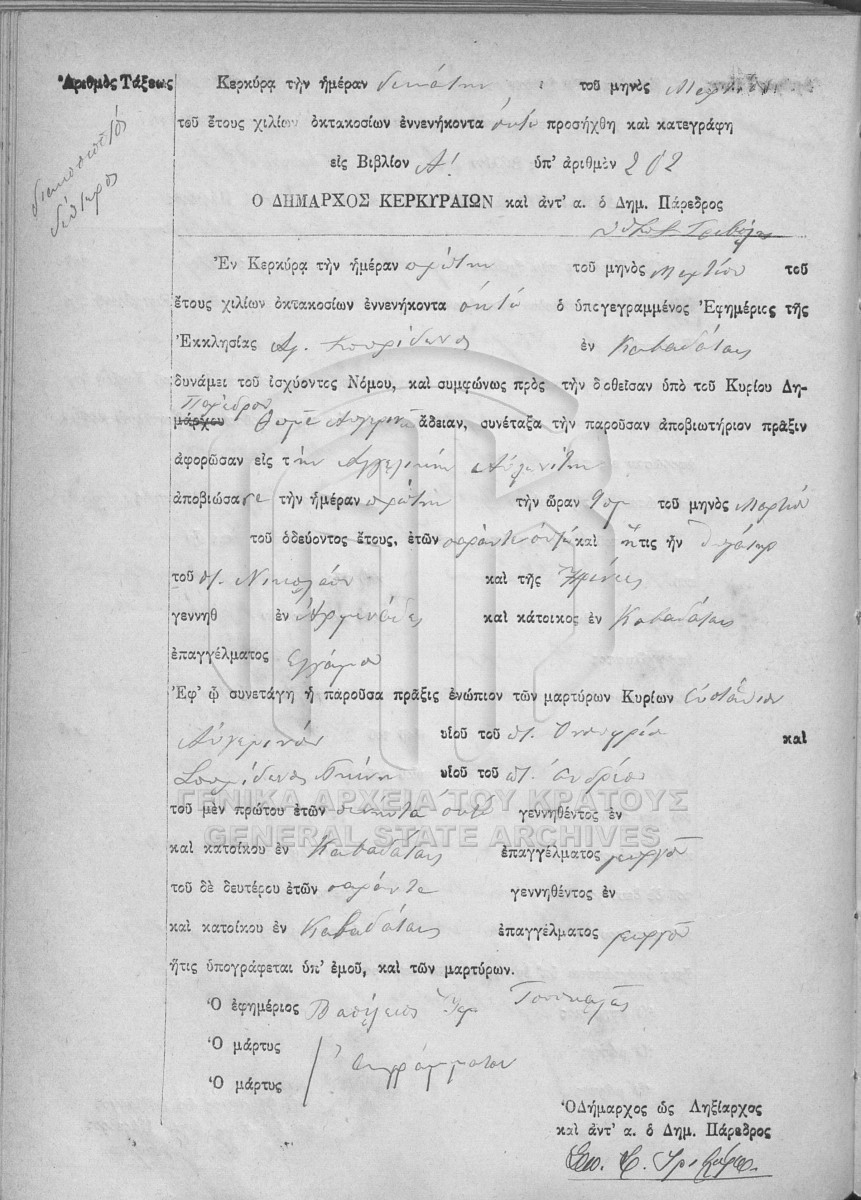 Ἀριθμὸς Τάξεως
διακοσιοστὸς
δεύτερος
Κερκύρᾳ τὴν ἡμέραν δεκάτην τοῦ μηνὸς Μαρτίου
τοῦ ἔτους χιλίων ὀκτακοσίων ἐννενήκοντα ὀκτὼ προσήχθη καὶ κατεγράφη
εἰς Βιβλίον Α! ὑπ' ἀριθμὸν 202
Ο ΔΗΜΑΡΧΟΣ ΚΕΡΚΥΡΑΙΩΝ καὶ ἀντ' α. ὁ Δημ. Πάρεδρος
Ἐν Κερκύρᾳ τὴν ἡμέραν πρώτην τοῦ μηνὸς Μαρτίου τοῦ
ἔτους χιλίων ὀκτακοσίων ἐννενήκοντα ὀκτὼ ὁ ὑπογεγραμμένος Ἐφημέριος τῆς
Ἐκκλησίας Ἁγ. Σπυρίδωνος ἐν Καβαδάταις
δυνάμει τοῦ ἰσχύοντος Νόμου, καὶ συμφώνως πρὸς τὴν δοθεῖσαν ὑπὸ τοῦ Κυρίου Δη-
Παρέδρου
μάρχου Θωμᾶ Αὐγερινοῦ ἄδειαν, συνέταξα τὴν παροῦσαν ἀποβιωτήριον πρᾶξιν
ἀφορῶσαν εἰς τὴν Ἀγγελικὴν
ἀποβιώσασα τὴν ἡμέραν πρώτην τὴν ὥραν 9 πμ τοῦ μηνὸς Μαρτίου
τοῦ ὁδεύοντος ἔτους, ἐτῶν σαράντα ὀκτὼ καὶ ἥτις ἦν θυγάτηρ
τοῦ π. Νικολάου καὶ τῆς Εἰρήνης
γεννηθ ἐν Ἀρμενάδες καὶ κάτοικος ἐν Καβαδάταις
ἐπαγγέλματος ἔγγαμου
Ἐφ' ᾧ συνετάγη ἡ παροῦσα πρᾶξις ἐνώπιον τῶν μαρτύρων Κυρίων Εὐσταθίου
Αὐγερινοῦ υἱοῦ τοῦ π. Ὀνουφρίου καὶ
Σπυρίδωνος υἱοῦ τοῦ π. Ἀνδρέου
τοῦ μὲν πρώτου ἐτῶν πενῆντα ὀκτὼ γεννηθέντος ἐν
καὶ κατοίκου ἐν Καβαδάταις ἐπαγγέλματος γεωργοῦ
τοῦ δὲ δευτέρου ἐτῶν σαράντα γεννηθέντος ἐν
καὶ κατοίκου ἐν Καβαδάταις ἐπαγγέλματος γεωργοῦ
ἥτις ὑπογράφεται ὑπ' ἐμοῦ, καὶ τῶν μαρτύρων.
Ὁ ἐφημέριος Βασίλειος Ἱερ
Ὁ μάρτυς
ἀγράμματοι
Ὁ μάρτυς
Ὁ Δήμαρχος ὡς Ληξίαρχος
καὶ ἀντ' α. ὁ Δημ. Πάρεδρος
ΓΕΝΙΚΑ ΑΡΧΕΙΑ ΤΟΥ ΚΡΑΤΟΥΣ
GENERAL STATE ARCHIVES